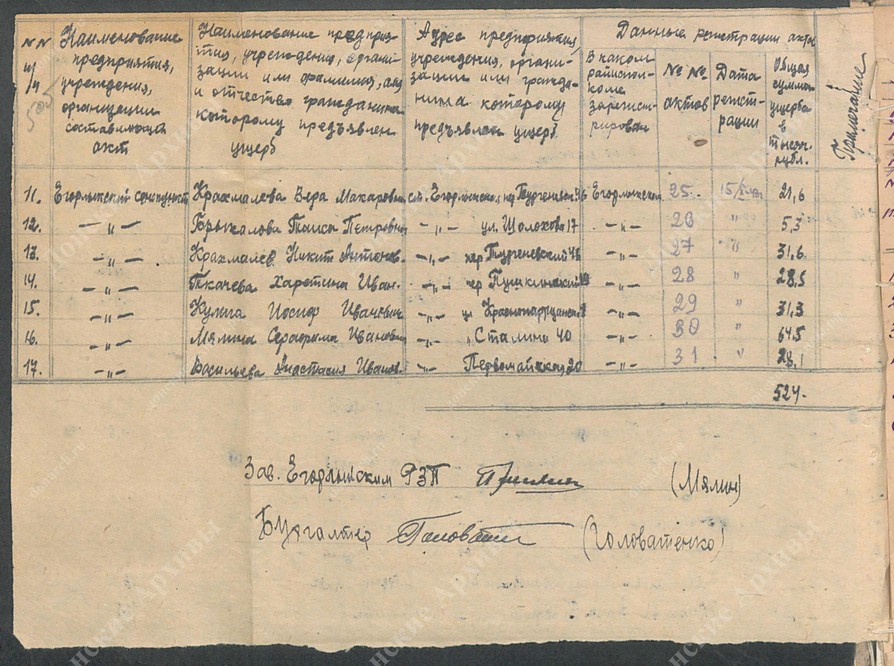 №№ п/п
Наименование предприятия, учреждения, организации составляющей акт
Наименование предприятия, учреждения, организации или фамилия, имя и отчество гражданина которому предъявлен ущерб
Адрес предприятия, учреждения, организации или гражданина которому предъявлен ущерб
Данные регистрации акта
В каком райисполкоме зарегистрирован
№№ актов
Дата регистрации
Общая сумма ущерба в тысяч. рубл.
Примечание
11. Егорлыкский Крахмалева Вера Макаровна ст. Егорлыкская, пер. Тургеневский 46 Егорлыкском 25. 21,6
12. —„— Брыкалова Таиса Петровна —„— ул. Шолохова 17 —„— 26 „ 5,3
13. —„— Крахмалев Никит Антонов. —„— пер Тургеневский 46 —„— 27 „ 31,6
14. —„— Ткачева Харетина Иван. —„— пер Пушкинский —„— 28 „ 28,5
15. —„— Кулига Иосиф Иванович —„— ул Краснопартизанская —„— 29 „ 31,3
16. —„— Мялина Серафима Ивановна —„— „ Сталина 40 —„— 30 „ 64,5
17. —„— Васильева Анастасия Иванов. —„— Первомайская 20 —„— 31 „ 28,1
524.
Зав. Егорлыкским РЗП (Мялин)
Бухгалтер Головатен (Головатенко)